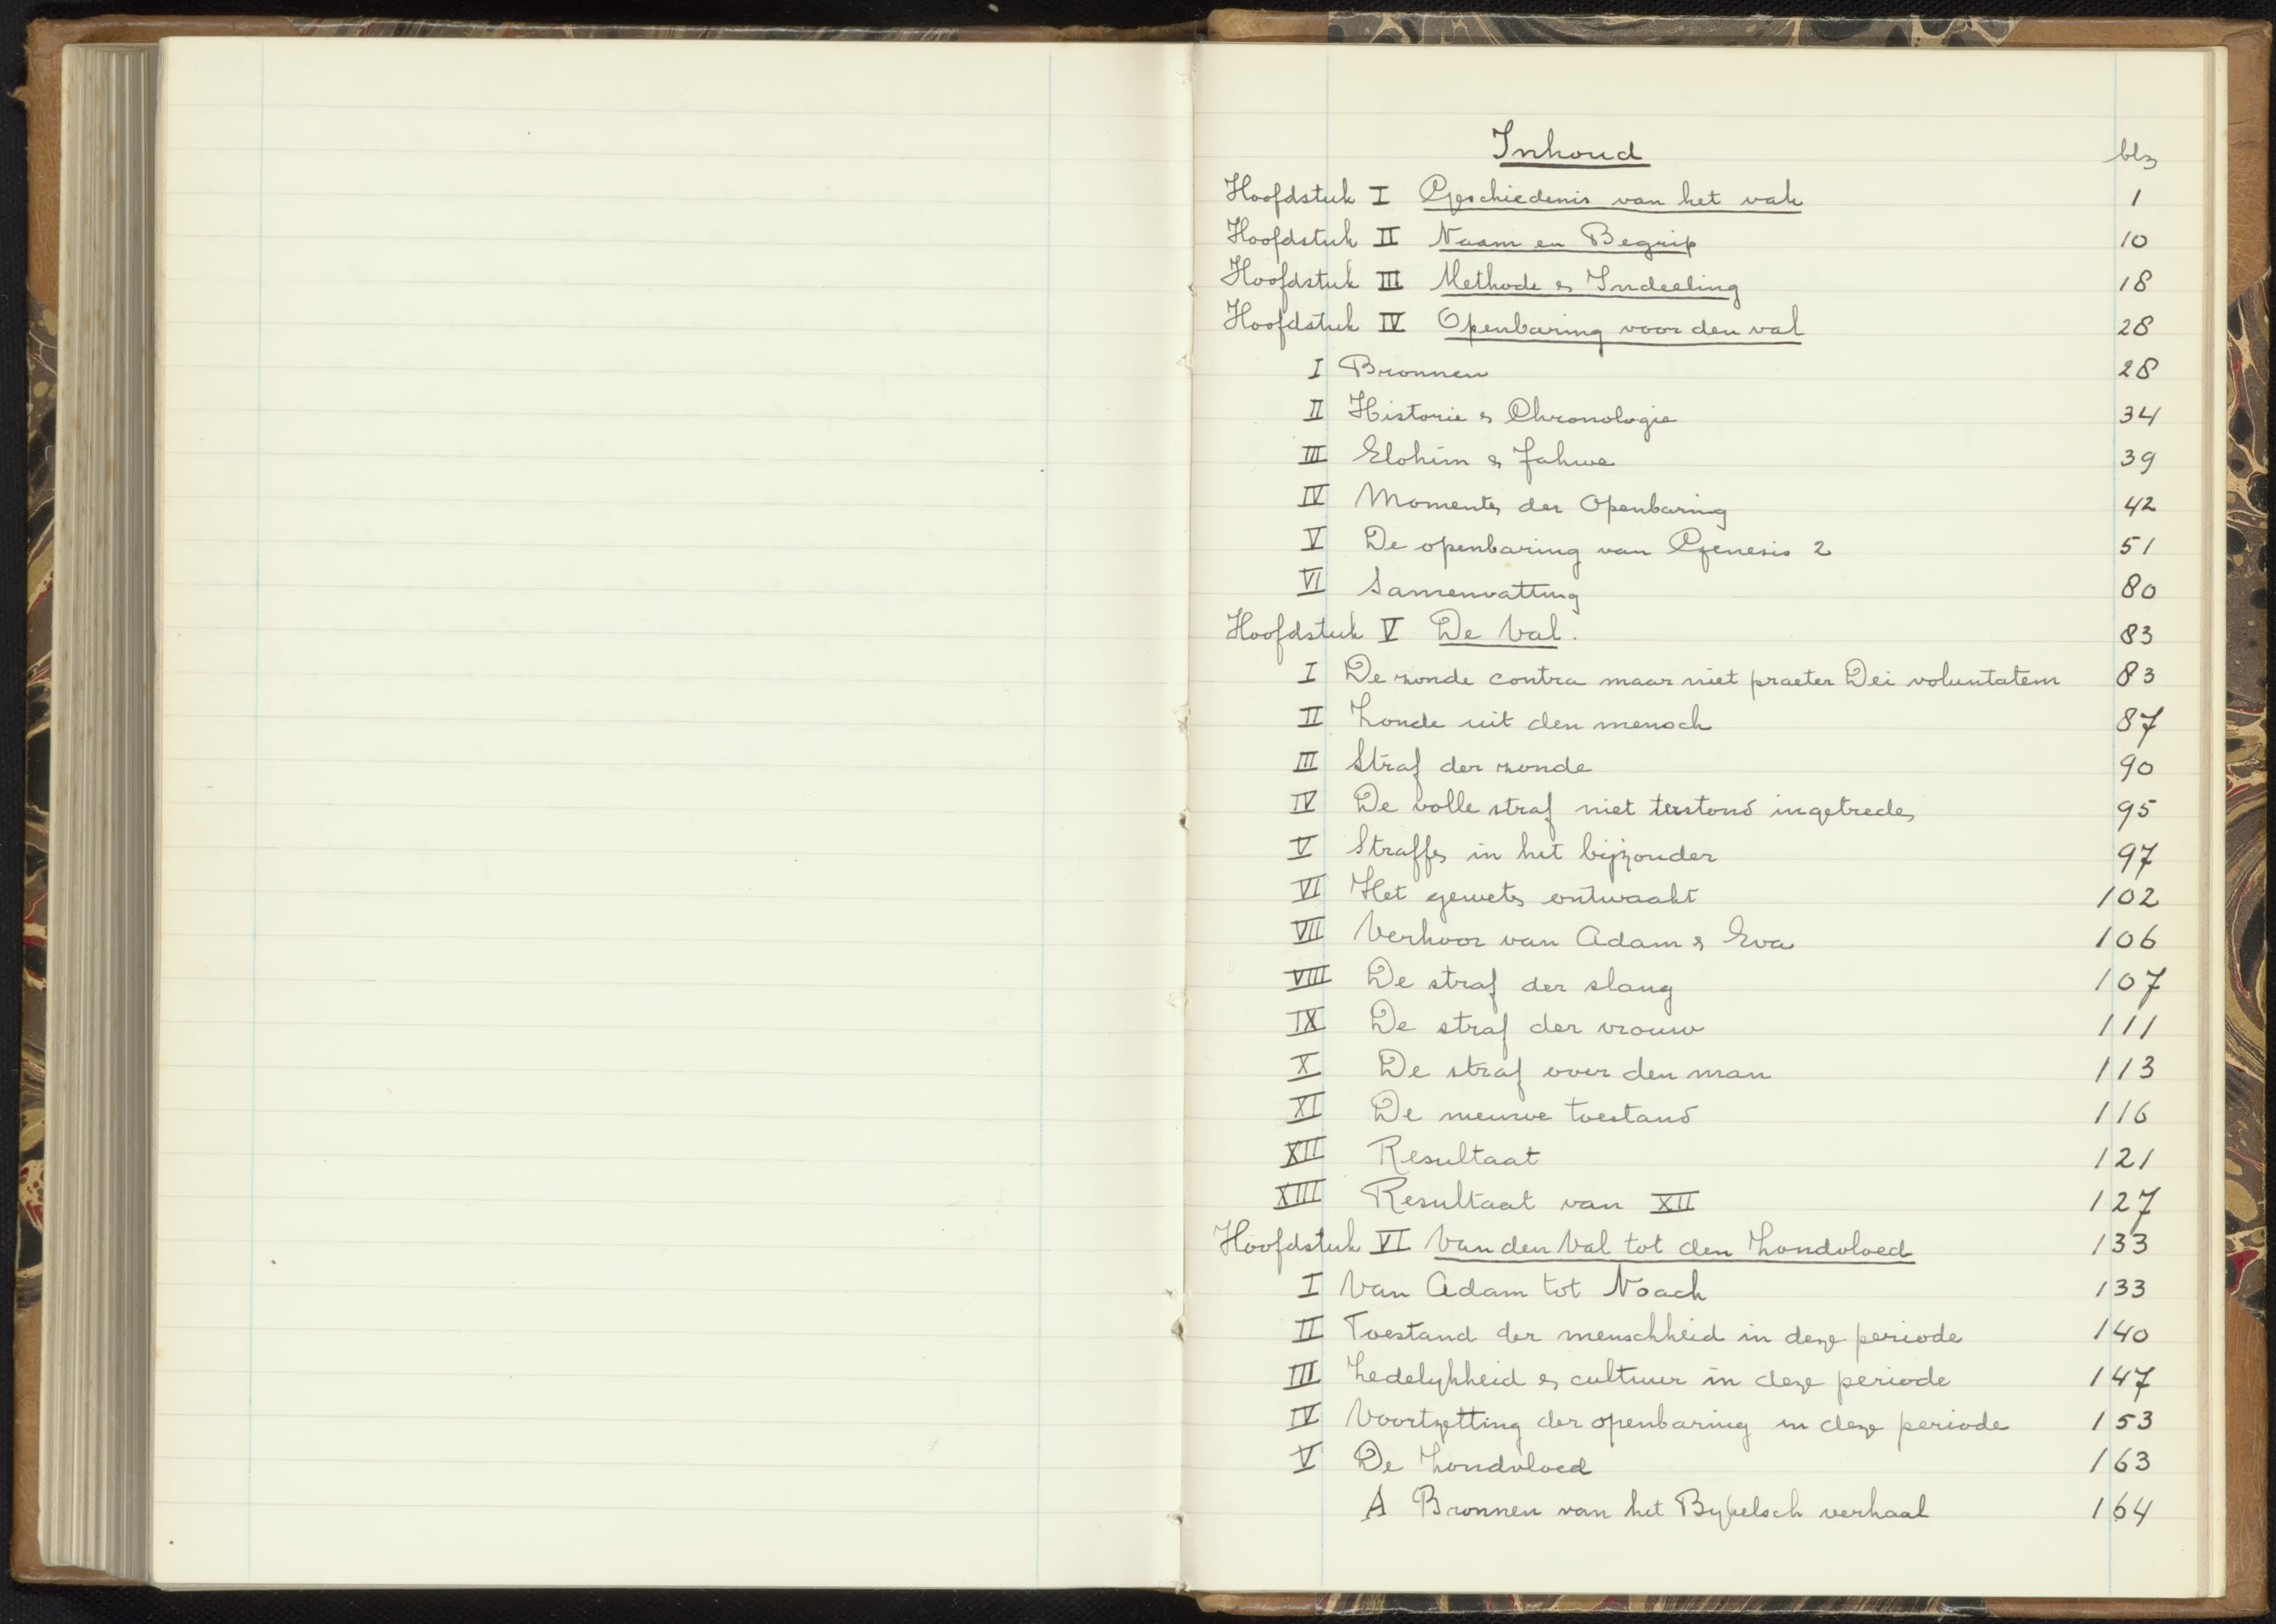 Inhoud blz
Hoofdstuk I Geschiedenis van het vak 1
Hoofdstuk II Naam en Begrip 10
Hoofdstuk III Methode en Indeeling 18
Hoofdstuk IV Openbaring voor den val 28
I Bronnen 28
II Historie en Chronologie 34
III Elohim en Jahwe 39
IV Momenten der Openbaring 42
V De openbaring van Genesis 2 51
VI Samenvatting 80
Hoofdstuk V De Val. 83
I De zonde contra maar niet praeter Dei voluntatem 83
II Zonde uit den mensch 87
III Straf der zonde 90
IV De volle straf niet terstond ingetreden 95
V Straffen in het bijzonder 97
VI Het geweten ontwaakt 102
VII Verhoor van Adam en Eva 106
VIII De straf der slang 107
IX De straf der vrouw 111
X De straf over den man 113
XI De nieuwe toestand 116
XII Resultaat 121
XIII Resultaat van XII 127
Hoofdstuk VI Van den Val tot den Zondvloed 133
I Van Adam tot Noach 133
II Toestand der menschheid in deze periode 140
III Zedelykheid en cultuur in deze periode 147
IV Voortzetting der openbaring in deze periode 153
V De Zondvloed 163
A Bronnen van het Bybelsch verhaal 164